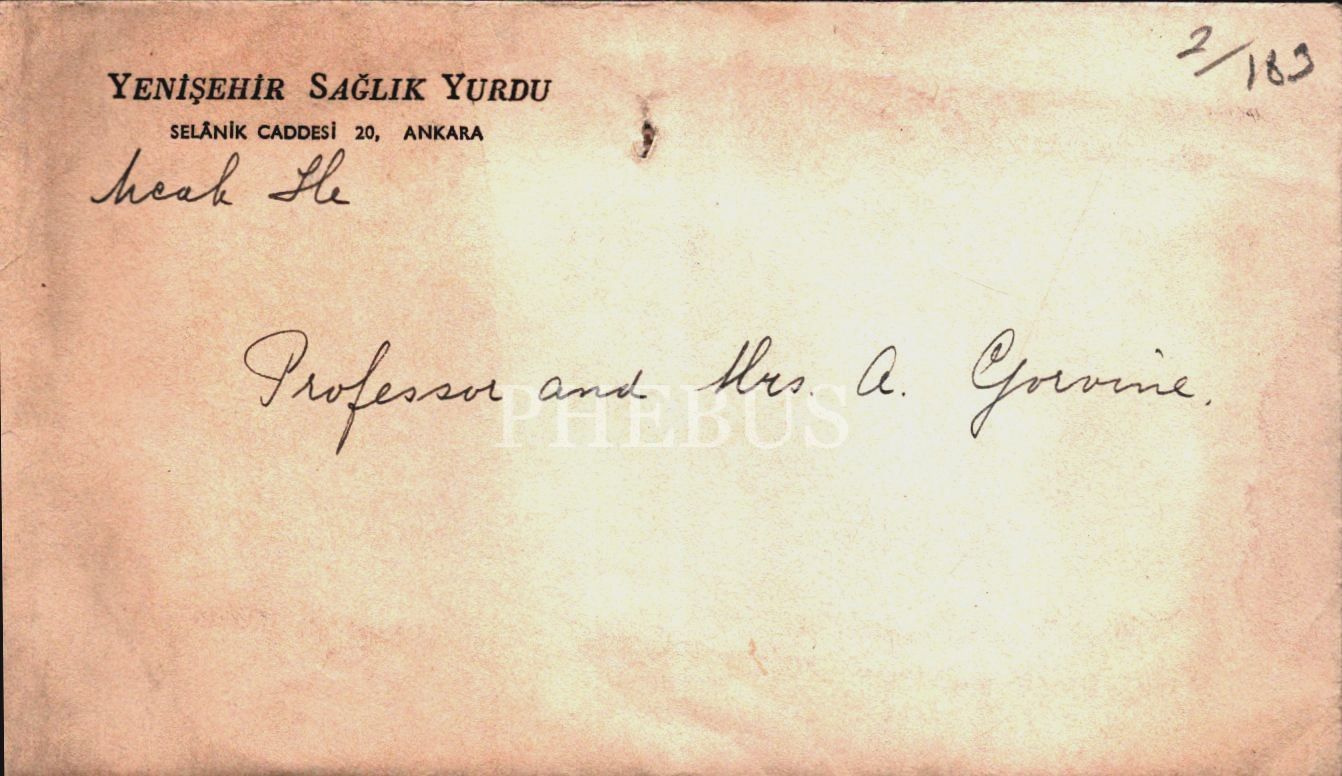 2/183
YENİŞEHİR SAĞLIK YURDU
SELÂNİK CADDESİ 20, ANKARA
Professor and Mrs. A. Gorvine.
PHEBUS